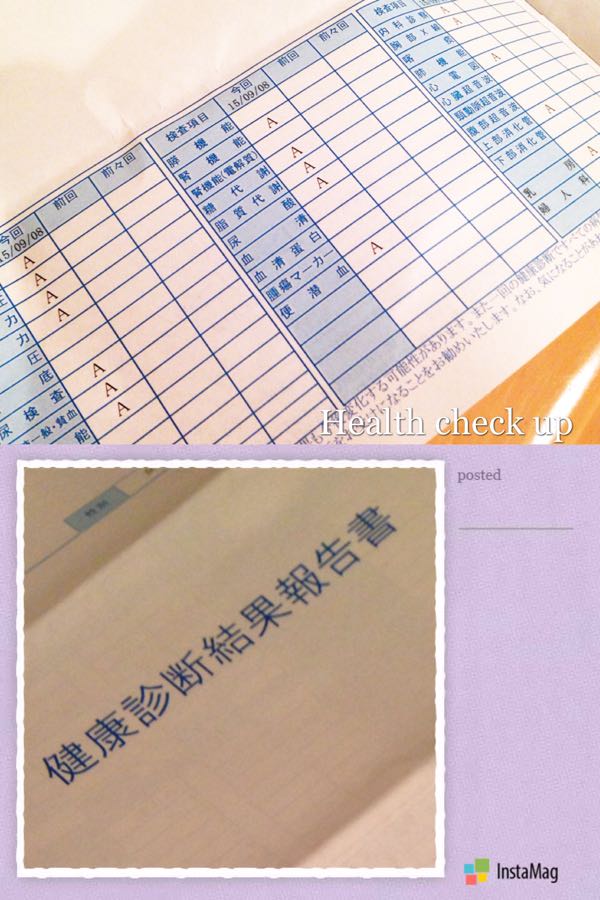 今回 前回 前々回
15/09/08
圧 A
力 A
力 A
圧 A
底
尿検査 A
一般・貧血 A
能 A
検査項目 今回 前回 前々回
15/09/08
膵機能
腎機能 A
腎機能(電解質)
糖代謝 A
脂質代謝 A
尿酸 A
血清
血清蛋白
腫瘍マーカー
便潜血 A
検査項目
内科診察 A
胸部X線 A
喀痰
肺機能
心電図 A
心臓超音波
頸動脈超音波
腹部超音波 A
上部消化管
下部消化管
乳房 A
婦人科
化する可能性があります。また一回の健康診断ですべての病
になることをお勧めいたします。なお、気になることがあれ
Health check up
posted
性別
健康診断結果報告書
InstaMag